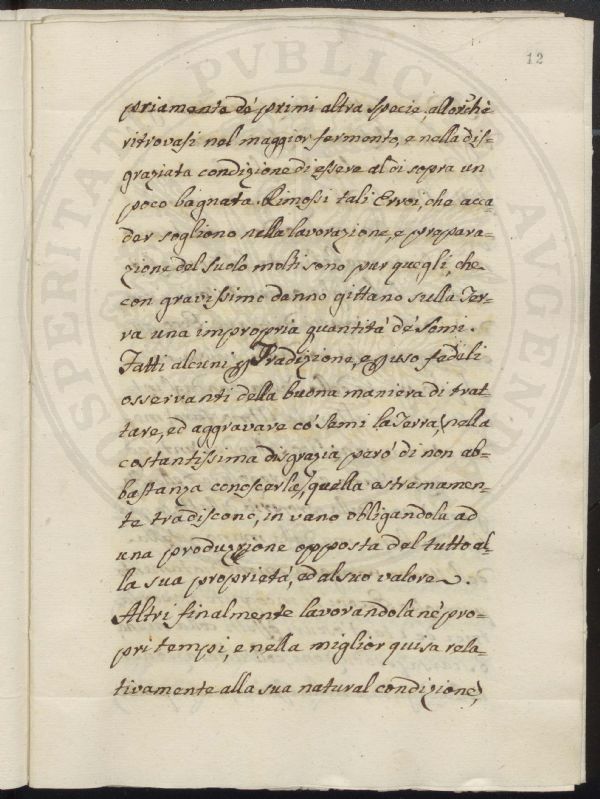 12
priamente de' primi altra specie, allorchè
ritrovasi nel maggior fermento, e nella dis-
graziata condizione di essere al di sopra un
poco bagnata. Rimossi tali Errori, che acca-
der sogliono nella lavorazione, e prepara-
zione del Suolo molti sono pur quegli, che
con gravissimo danno gittano sulla Ter-
ra una impropria quantità de' Semi.
Fatti alcuni Tradizione, e uso fedeli
osservanti della buona maniera di trat-
tare, ed aggravare co' Semi la Terra, nella
costantissima disgrazia però di non ab-
bastanza conoscerla, quella estremamen-
te tradiscono, in vano obligandola ad
una produzione opposta del tutto al-
la sua proprietà, ed al suo valore.
Altri finalmente lavorandola nè pro-
pri tempi, e nella miglior guisa rela-
tivamente alla sua natural condizione,
PVBLIC
AVGEN
PROSPERITATI